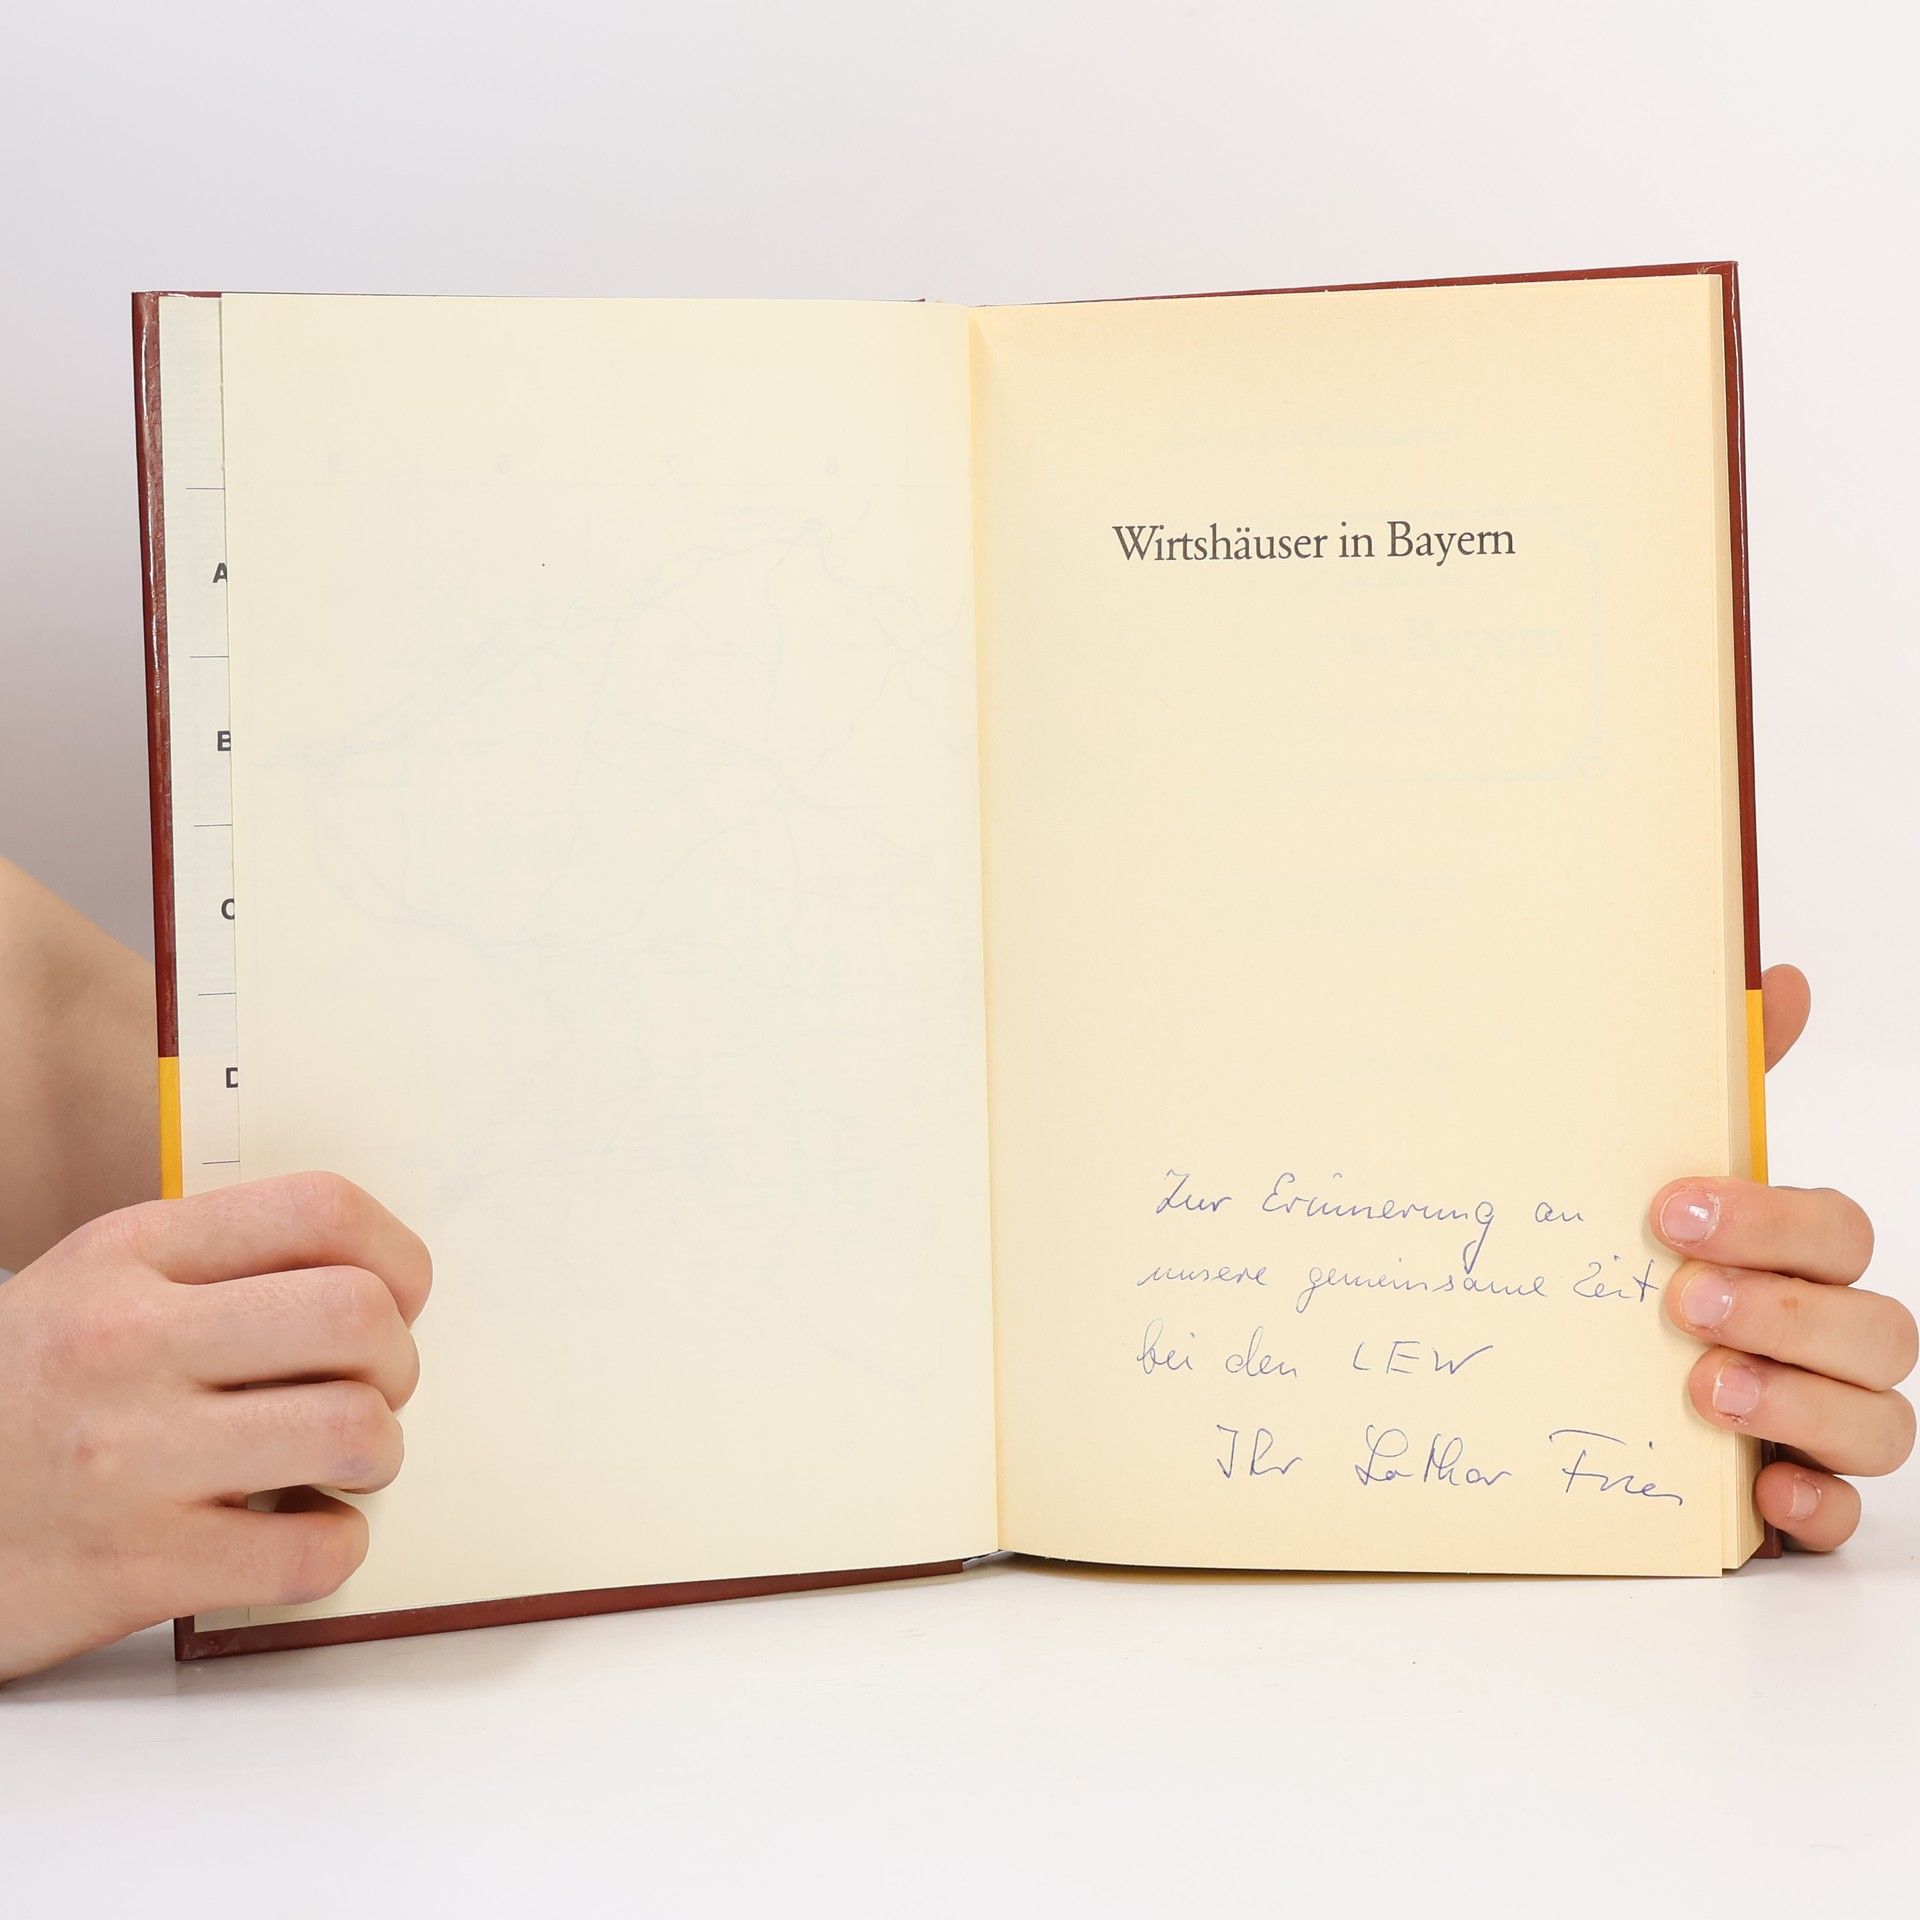 A
B
C
D
Wirtshäuser in Bayern
Zur Erinnerung an
unsere gemeinsame Zeit
bei den LEW
Ihr Lothar Fries